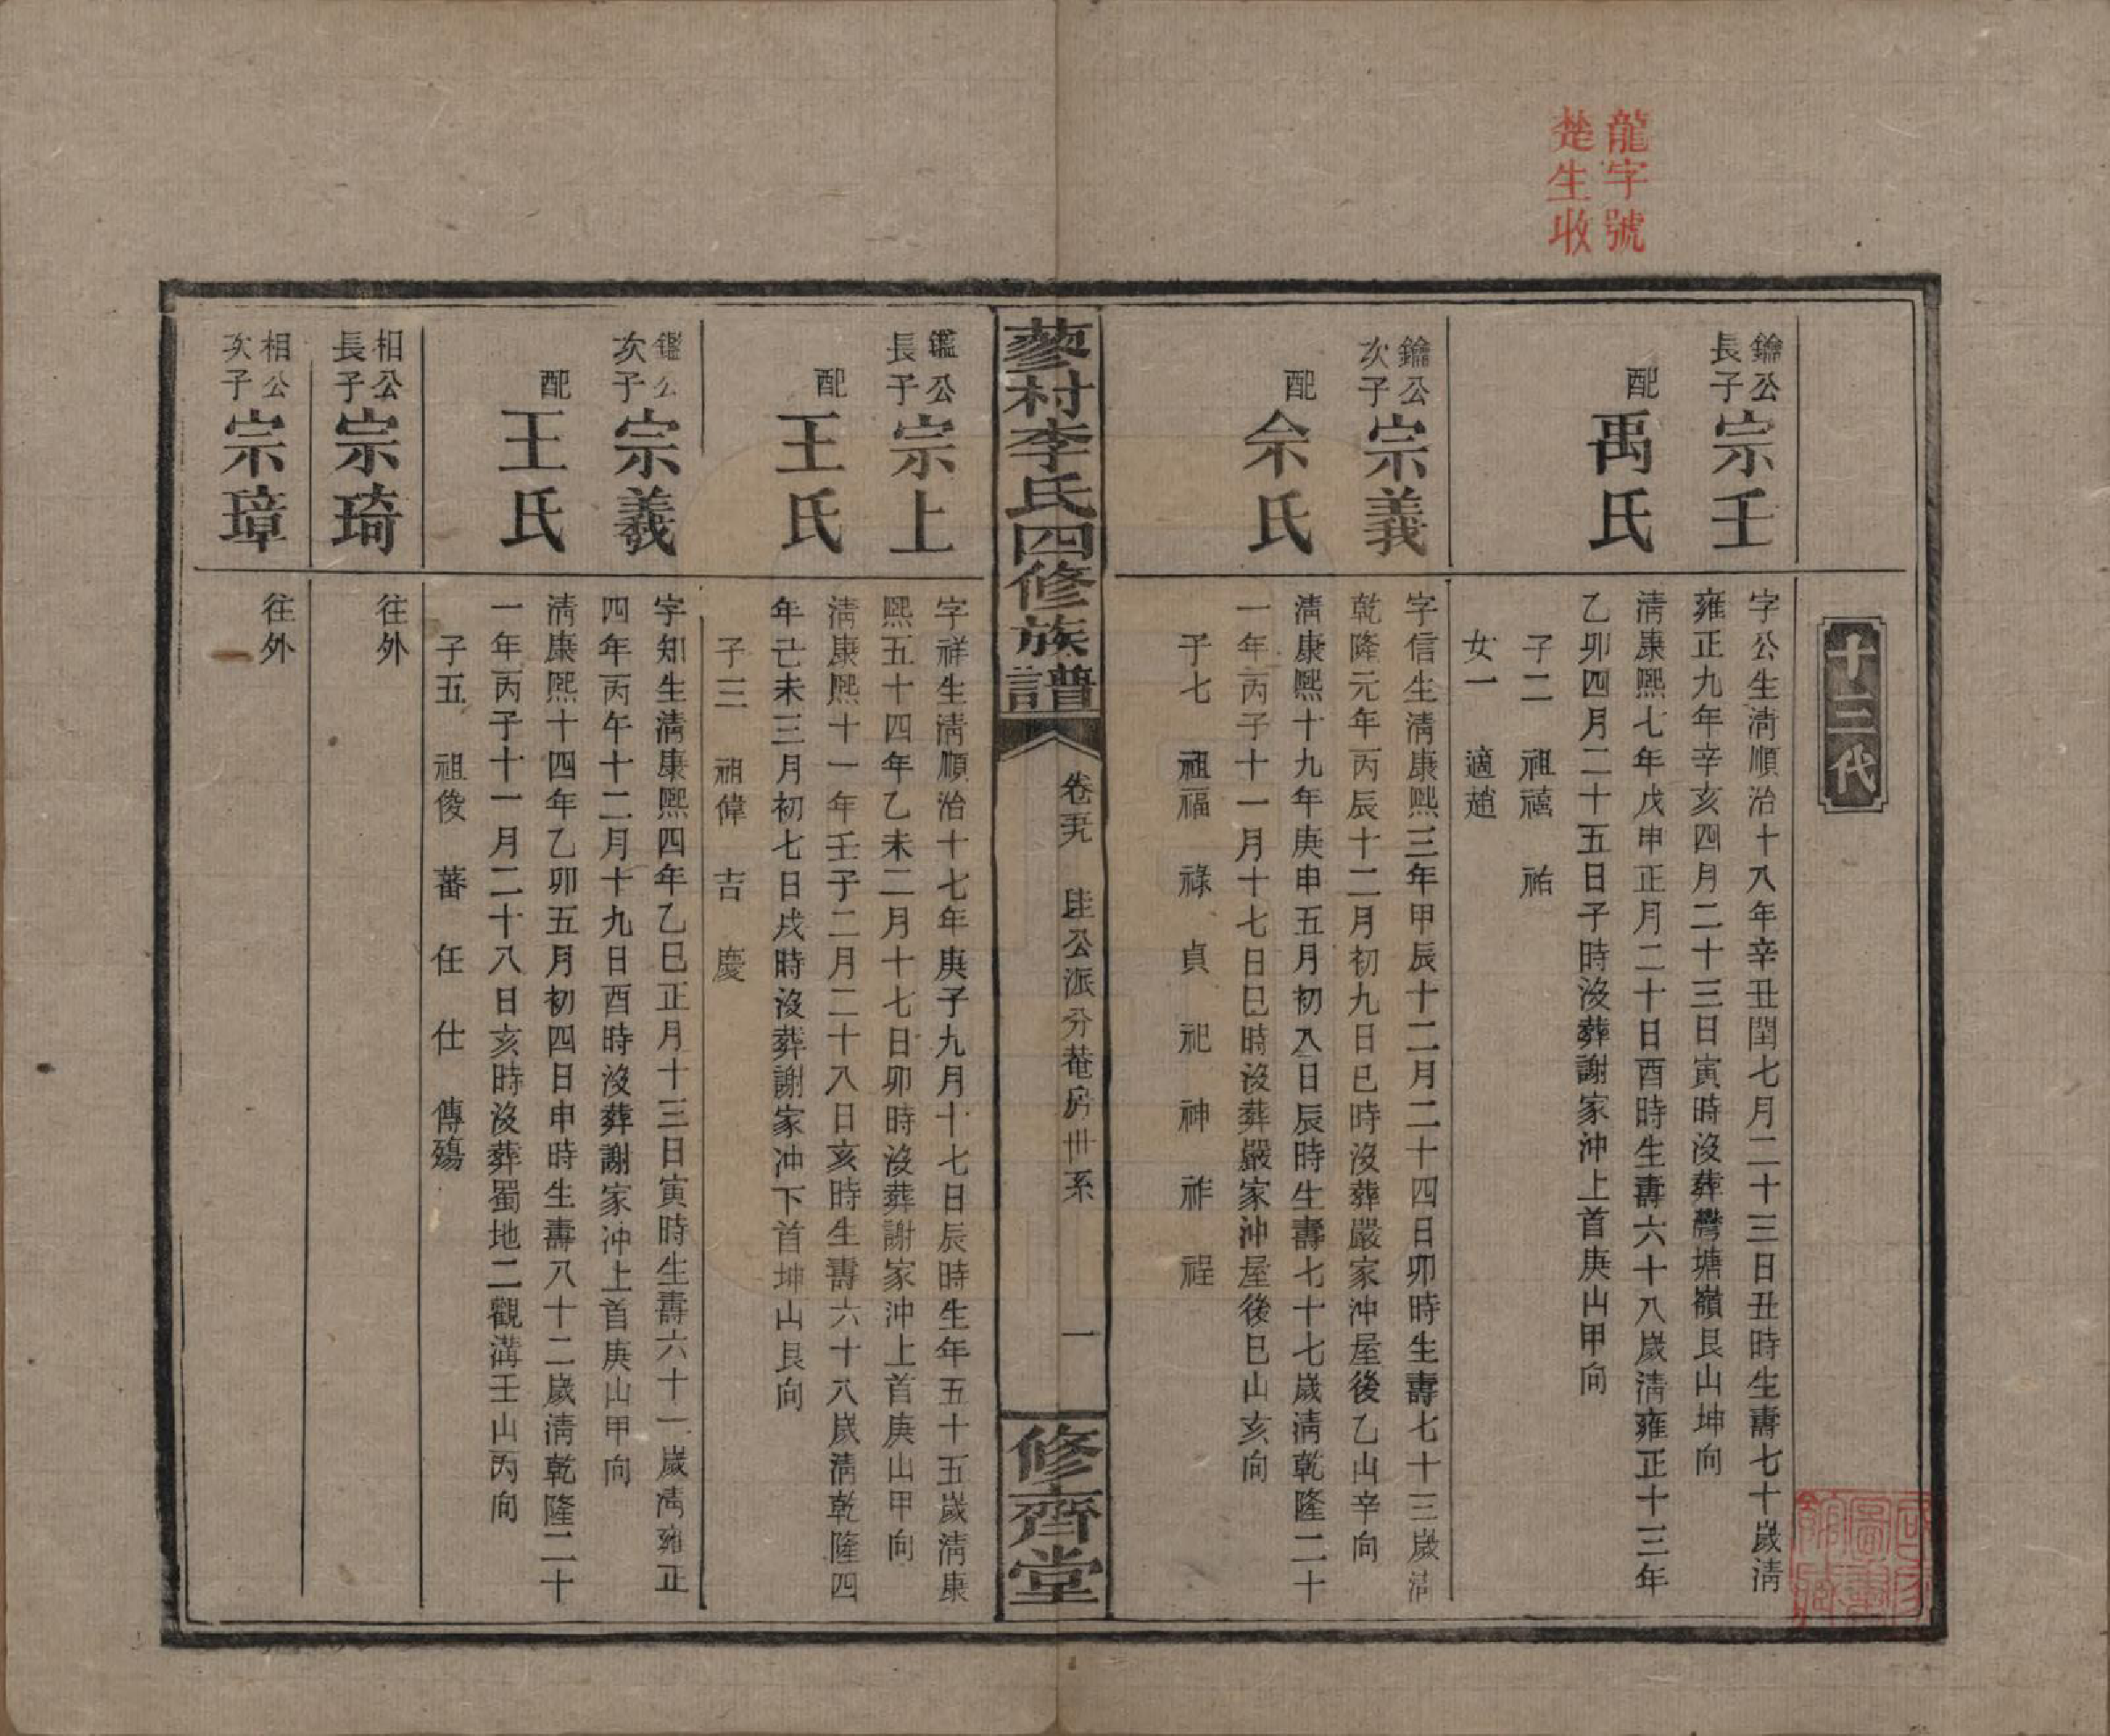 龍字號
楚生收
十三代
鑰公長子 宗壬
字公生淸順治十八年辛丑閏七月二十三日丑時生壽七十歲淸
雍正九年辛亥四月二十三日寅時沒葬灣塘嶺艮山坤向
配 禹氏
淸康熙七年戊申正月二十日酉時生壽六十八歲淸雍正十三年
乙卯四月二十五日子時沒葬謝家沖上首庚山甲向
子二 祖禧 祐
女一 適趙
鑰公次子 宗義
字信生淸康熙三年甲辰十二月二十四日卯時生壽七十三歲淸
乾隆元年丙辰十二月初九日巳時沒葬嚴家沖屋後乙山辛向
配 余氏
淸康熙十九年庚申五月初八日辰時生壽七十七歲淸乾隆二十
一年丙子十一月十七日巳時沒葬嚴家沖屋後巳山亥向
子七 祖福 祿 貞 祀 神 祚 程
蓼村李氏四修族譜
卷
公派分菴房世系
一
修齊堂
鑑公長子 宗上
字祥生淸順治十七年庚子九月十七日辰時生年五十五歲淸康
熙五十四年乙未二月十七日卯時沒葬謝家沖上首庚山甲向
配 王氏
淸康熙十一年壬子二月二十八日亥時生壽六十八歲淸乾隆四
年己未三月初七日戌時沒葬謝家沖下首坤山艮向
子三 祖偉 吉 慶
鑑公次子 宗羲
字知生淸康熙四年乙巳正月十三日寅時生壽六十一歲淸雍正
四年丙午十二月十九日酉時沒葬謝家沖上首庚山甲向
配 王氏
淸康熙十四年乙卯五月初四日申時生壽八十二歲淸乾隆二十
一年丙子十一月二十八日亥時沒葬蜀地二觀溝壬山丙向
子五 祖俊 蕃 任 仕 傳殤
相公長子 宗琦
往外
相公次子 宗璋
往外